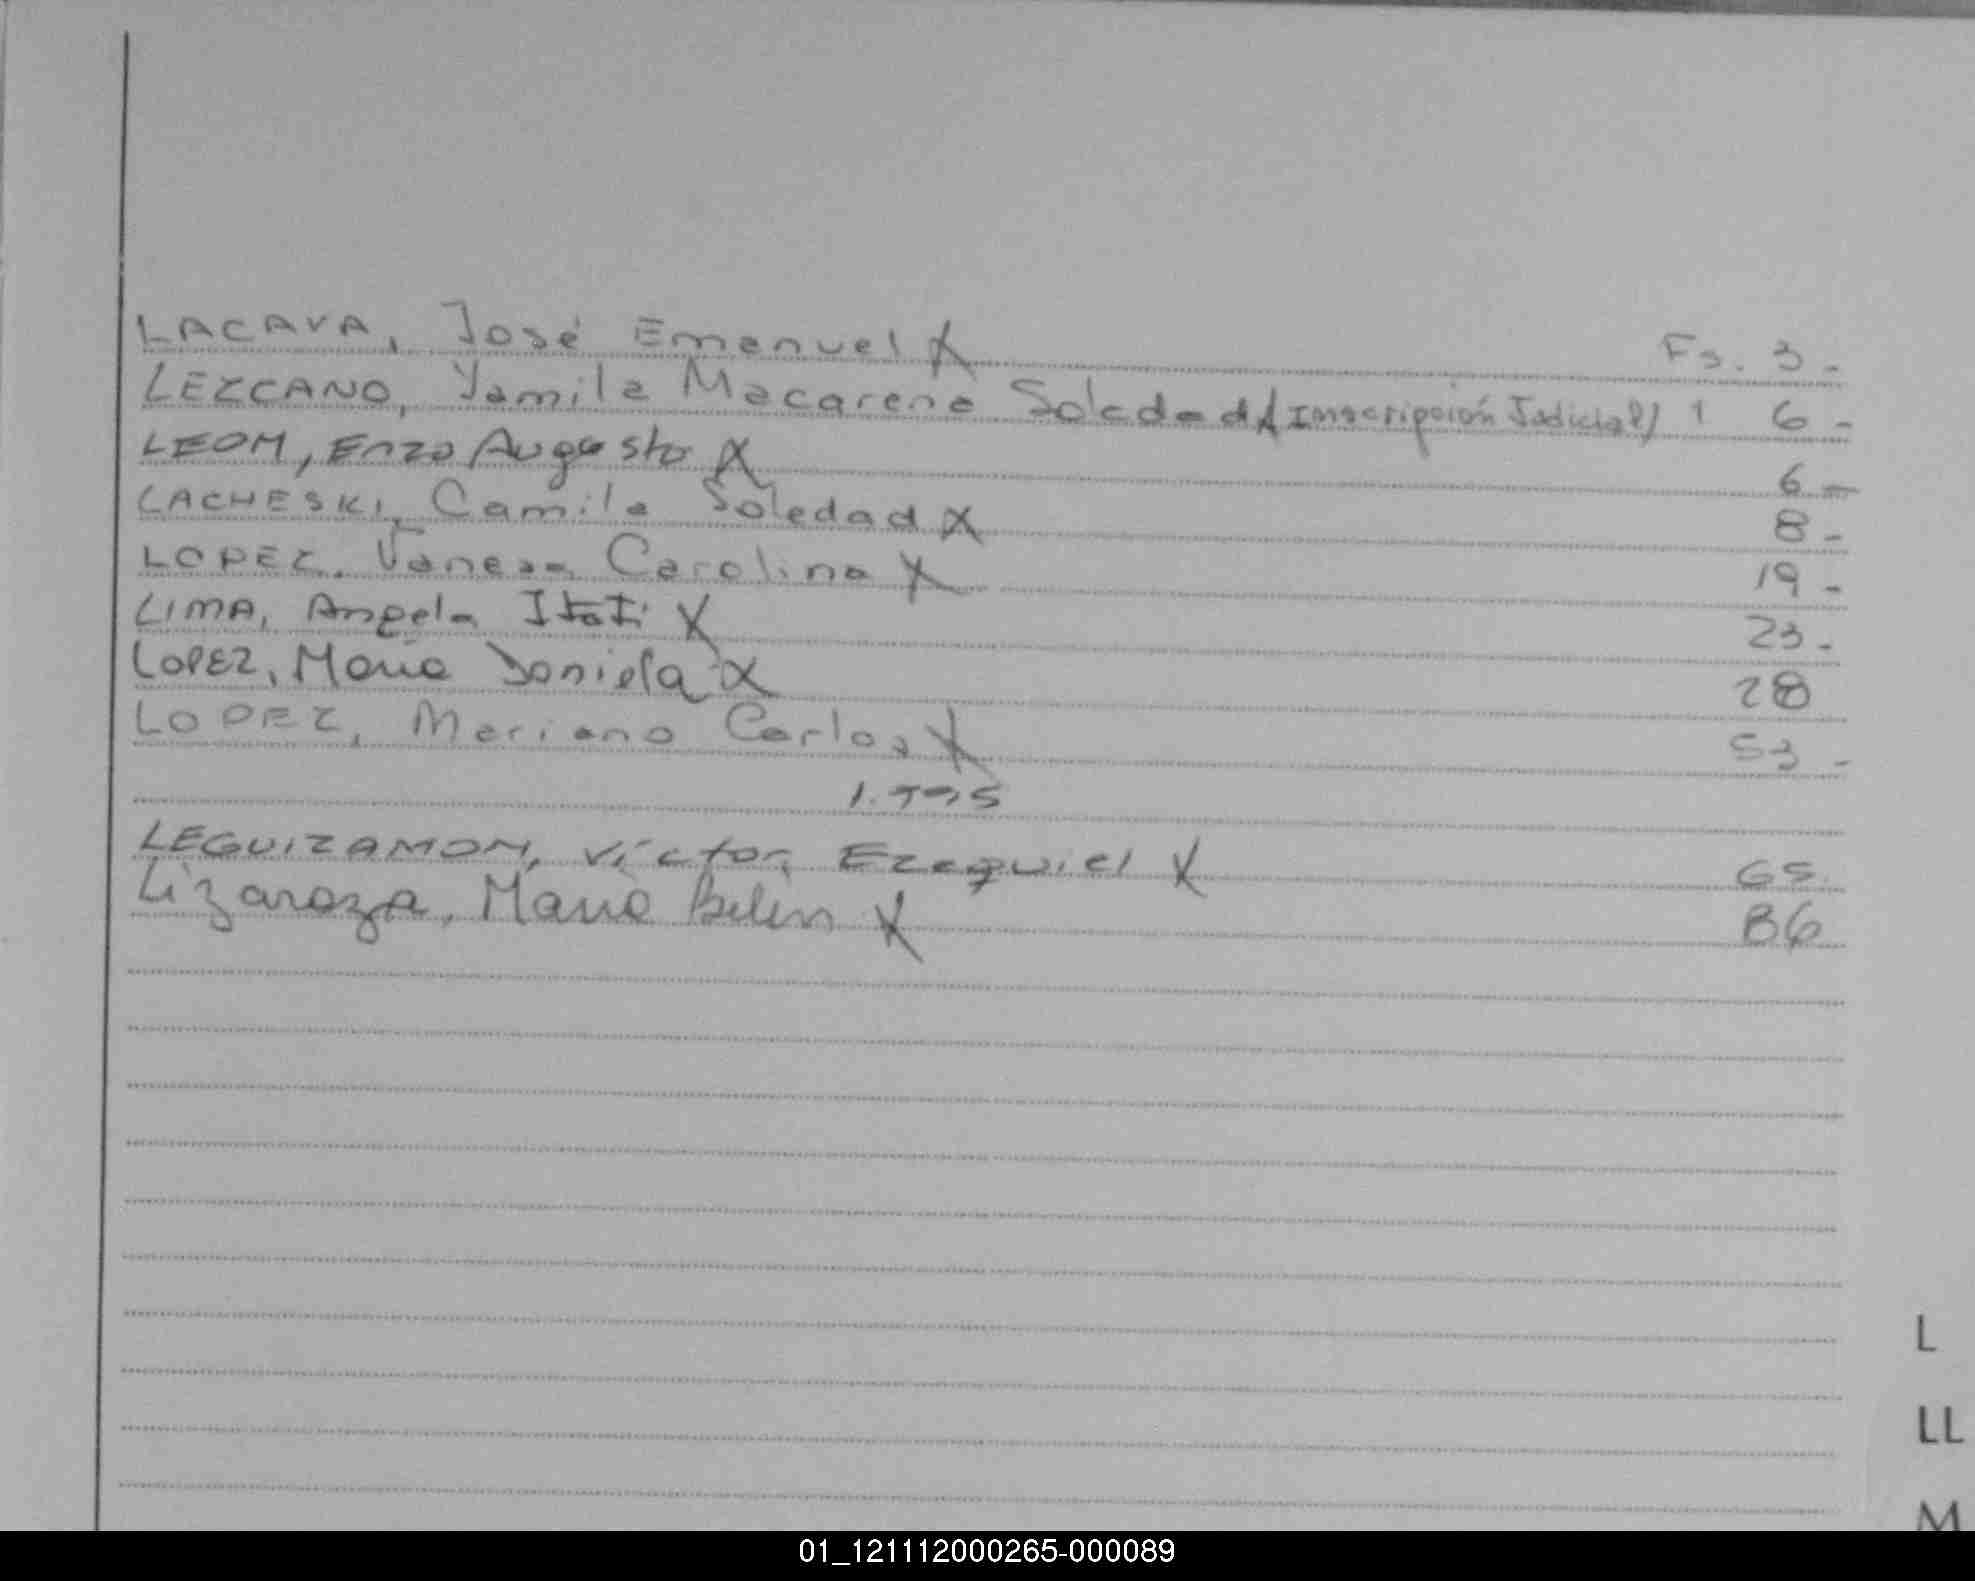 LACAVA, José Emanuel X Fs. 3 -
LEZCANO, Yamila Macarena Soledad X (Inscripción Judicial) 1 6 -
LEOM, Enzo Augusto X 6 -
LACHESKI, Camila Soledad X 8 -
LOPEZ, Vanesa Carolina X 19 -
LIMA, Angela Itati X 23 -
LOPEZ, Maria Daniela X 28
LOPEZ, Mariano Carlos X 53 -
1.995
LEGUIZAMON, Víctor Ezequiel X 65
Lizaroza, Maria Belén X 86
L
LL
M
01_121112000265-000089